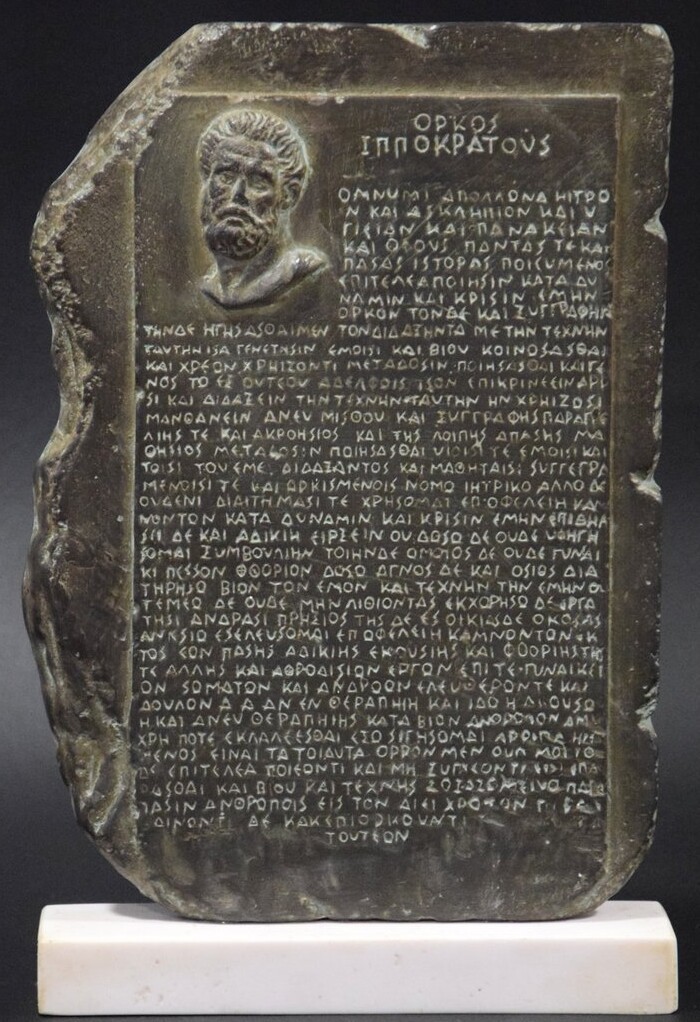 ΟΡΚΟΣ
ΙΠΠΟΚΡΑΤΟΥΣ
ΟΜΝΥΜΙ ΑΠΟΛΛΩΝΑ ΙΗΤΡΟ
Ν ΚΑΙ ΑΣΚΛΗΠΙΟΝ ΚΑΙ Υ
ΓΙΕΙΑΝ ΚΑΙ ΠΑΝΑΚΕΙΑΝ
ΚΑΙ ΘΕΟΥΣ ΠΑΝΤΑΣ ΤΕ ΚΑΙ
ΠΑΣΑΣ ΙΣΤΟΡΑΣ ΠΟΙΕΥΜΕΝΟΣ
ΕΠΙΤΕΛΕΑ ΠΟΙΗΣΙΝ ΚΑΤΑ ΔΥ
ΝΑΜΙΝ ΚΑΙ ΚΡΙΣΙΝ ΕΜΗΝ
ΟΡΚΟΝ ΤΟΝΔΕ ΚΑΙ ΞΥΓΓΡΑΦΗΝ
ΤΗΝΔΕ ΗΓΗΣΑΣΘΑΙ ΜΕΝ ΤΟΝ ΔΙΔΑΞΑΝΤΑ ΜΕ ΤΗΝ ΤΕΧΝΗΝ
ΤΑΥΤΗΝ ΙΣΑ ΓΕΝΕΤΗΣΙΝ ΕΜΟΙΣΙ ΚΑΙ ΒΙΟΥ ΚΟΙΝΩΣΑΣΘΑΙ
ΚΑΙ ΧΡΕΩΝ ΧΡΗΙΖΟΝΤΙ ΜΕΤΑΔΟΣΙΝ ΠΟΙΗΣΑΣΘΑΙ ΚΑΙ ΓΕ
ΝΟΣ ΤΟ ΕΞ ΟΥΤΕΟΥ ΑΔΕΛΦΟΙΣ ΙΣΟΝ ΕΠΙΚΡΙΝΕΕΙΝ ΑΡΡΕ
ΣΙ ΚΑΙ ΔΙΔΑΞΕΙΝ ΤΗΝ ΤΕΧΝΗΝ ΤΑΥΤΗΝ ΗΝ ΧΡΗΙΖΩΣΙ
ΜΑΝΘΑΝΕΙΝ ΑΝΕΥ ΜΙΣΘΟΥ ΚΑΙ ΞΥΓΓΡΑΦΗΣ ΠΑΡΑΓΓΕ
ΛΙΗΣ ΤΕ ΚΑΙ ΑΚΡΟΗΣΙΟΣ ΚΑΙ ΤΗΣ ΛΟΙΠΗΣ ΑΠΑΣΗΣ ΜΑ
ΘΗΣΙΟΣ ΜΕΤΑΔΟΣΙΝ ΠΟΙΗΣΑΣΘΑΙ ΥΙΟΙΣΙ ΤΕ ΕΜΟΙΣΙ ΚΑΙ
ΤΟΙΣΙ ΤΟΥ ΕΜΕ ΔΙΔΑΞΑΝΤΟΣ ΚΑΙ ΜΑΘΗΤΑΙΣΙ ΣΥΓΓΕΓΡΑ
ΜΕΝΟΙΣΙ ΤΕ ΚΑΙ ΩΡΚΙΣΜΕΝΟΙΣ ΝΟΜΩ ΙΗΤΡΙΚΩ ΑΛΛΩ ΔΕ
ΟΥΔΕΝΙ ΔΙΑΙΤΗΜΑΣΙ ΤΕ ΧΡΗΣΟΜΑΙ ΕΠ ΩΦΕΛΕΙΗ ΚΑΜ
ΝΟΝΤΩΝ ΚΑΤΑ ΔΥΝΑΜΙΝ ΚΑΙ ΚΡΙΣΙΝ ΕΜΗΝ ΕΠΙ ΔΗΛΗ
ΣΕΙ ΔΕ ΚΑΙ ΑΔΙΚΙΗ ΕΙΡΞΕΙΝ ΟΥ ΔΩΣΩ ΔΕ ΟΥΔΕ ΥΦΗΓΗ
ΣΟΜΑΙ ΞΥΜΒΟΥΛΙΗΝ ΤΟΙΗΝΔΕ ΟΜΟΙΩΣ ΔΕ ΟΥΔΕ ΓΥΝΑΙ
ΚΙ ΠΕΣΣΟΝ ΦΘΟΡΙΟΝ ΔΩΣΩ ΑΓΝΩΣ ΔΕ ΚΑΙ ΟΣΙΩΣ ΔΙΑ
ΤΗΡΗΣΩ ΒΙΟΝ ΤΟΝ ΕΜΟΝ ΚΑΙ ΤΕΧΝΗΝ ΤΗΝ ΕΜΗΝ Ο
ΤΕΜΕΩ ΔΕ ΟΥΔΕ ΜΗΝ ΛΙΘΙΩΝΤΑΣ ΕΚΧΩΡΗΣΩ ΔΕ ΕΡΓΑ
ΤΗΣΙ ΑΝΔΡΑΣΙ ΠΡΗΞΙΟΣ ΤΗΣ ΔΕ ΕΣ ΟΙΚΙΑΣ ΔΕ ΟΚΟΣΑΣ
ΑΝ ΕΣΙΩ ΕΣΕΛΕΥΣΟΜΑΙ ΕΠ ΩΦΕΛΕΙΗ ΚΑΜΝΟΝΤΩΝ ΕΚ
ΤΟΣ ΕΩΝ ΠΑΣΗΣ ΑΔΙΚΙΗΣ ΕΚΟΥΣΙΗΣ ΚΑΙ ΦΘΟΡΙΗΣ ΤΗΣ
ΤΕ ΑΛΛΗΣ ΚΑΙ ΑΦΡΟΔΙΣΙΩΝ ΕΡΓΩΝ ΕΠΙ ΤΕ ΓΥΝΑΙΚΕΙ
ΩΝ ΣΩΜΑΤΩΝ ΚΑΙ ΑΝΔΡΩΩΝ ΕΛΕΥΘΕΡΩΝ ΤΕ ΚΑΙ
ΔΟΥΛΩΝ Α Δ ΑΝ ΕΝ ΘΕΡΑΠΗΙΗ Η ΙΔΩ Η ΑΚΟΥΣΩ
Η ΚΑΙ ΑΝΕΥ ΘΕΡΑΠΗΙΗΣ ΚΑΤΑ ΒΙΟΝ ΑΝΘΡΩΠΩΝ Α ΜΗ
ΧΡΗ ΠΟΤΕ ΕΚΛΑΛΕΕΣΘΑΙ ΕΞΩ ΣΙΓΗΣΟΜΑΙ ΑΡΡΗΤΑ ΗΓΕΥ
ΜΕΝΟΣ ΕΙΝΑΙ ΤΑ ΤΟΙΑΥΤΑ ΟΡΚΟΝ ΜΕΝ ΟΥΝ ΜΟΙ ΤΟΝ
ΔΕ ΕΠΙΤΕΛΕΑ ΠΟΙΕΟΝΤΙ ΚΑΙ ΜΗ ΞΥΓΧΕΟΝΤΙ ΕΙΗ ΕΠΑ
ΡΑΣΘΑΙ ΚΑΙ ΒΙΟΥ ΚΑΙ ΤΕΧΝΗΣ ΠΑ
ΠΑΣΙΝ ΑΝΘΡΩΠΟΙΣ ΕΙΣ ΤΟΝ ΑΙΕΙ ΧΡΟΝΟΝ
ΔΕ ΚΑΙ ΕΠΙΟΡΚΟΥΝΤΙ
ΤΟΥΤΕΩΝ